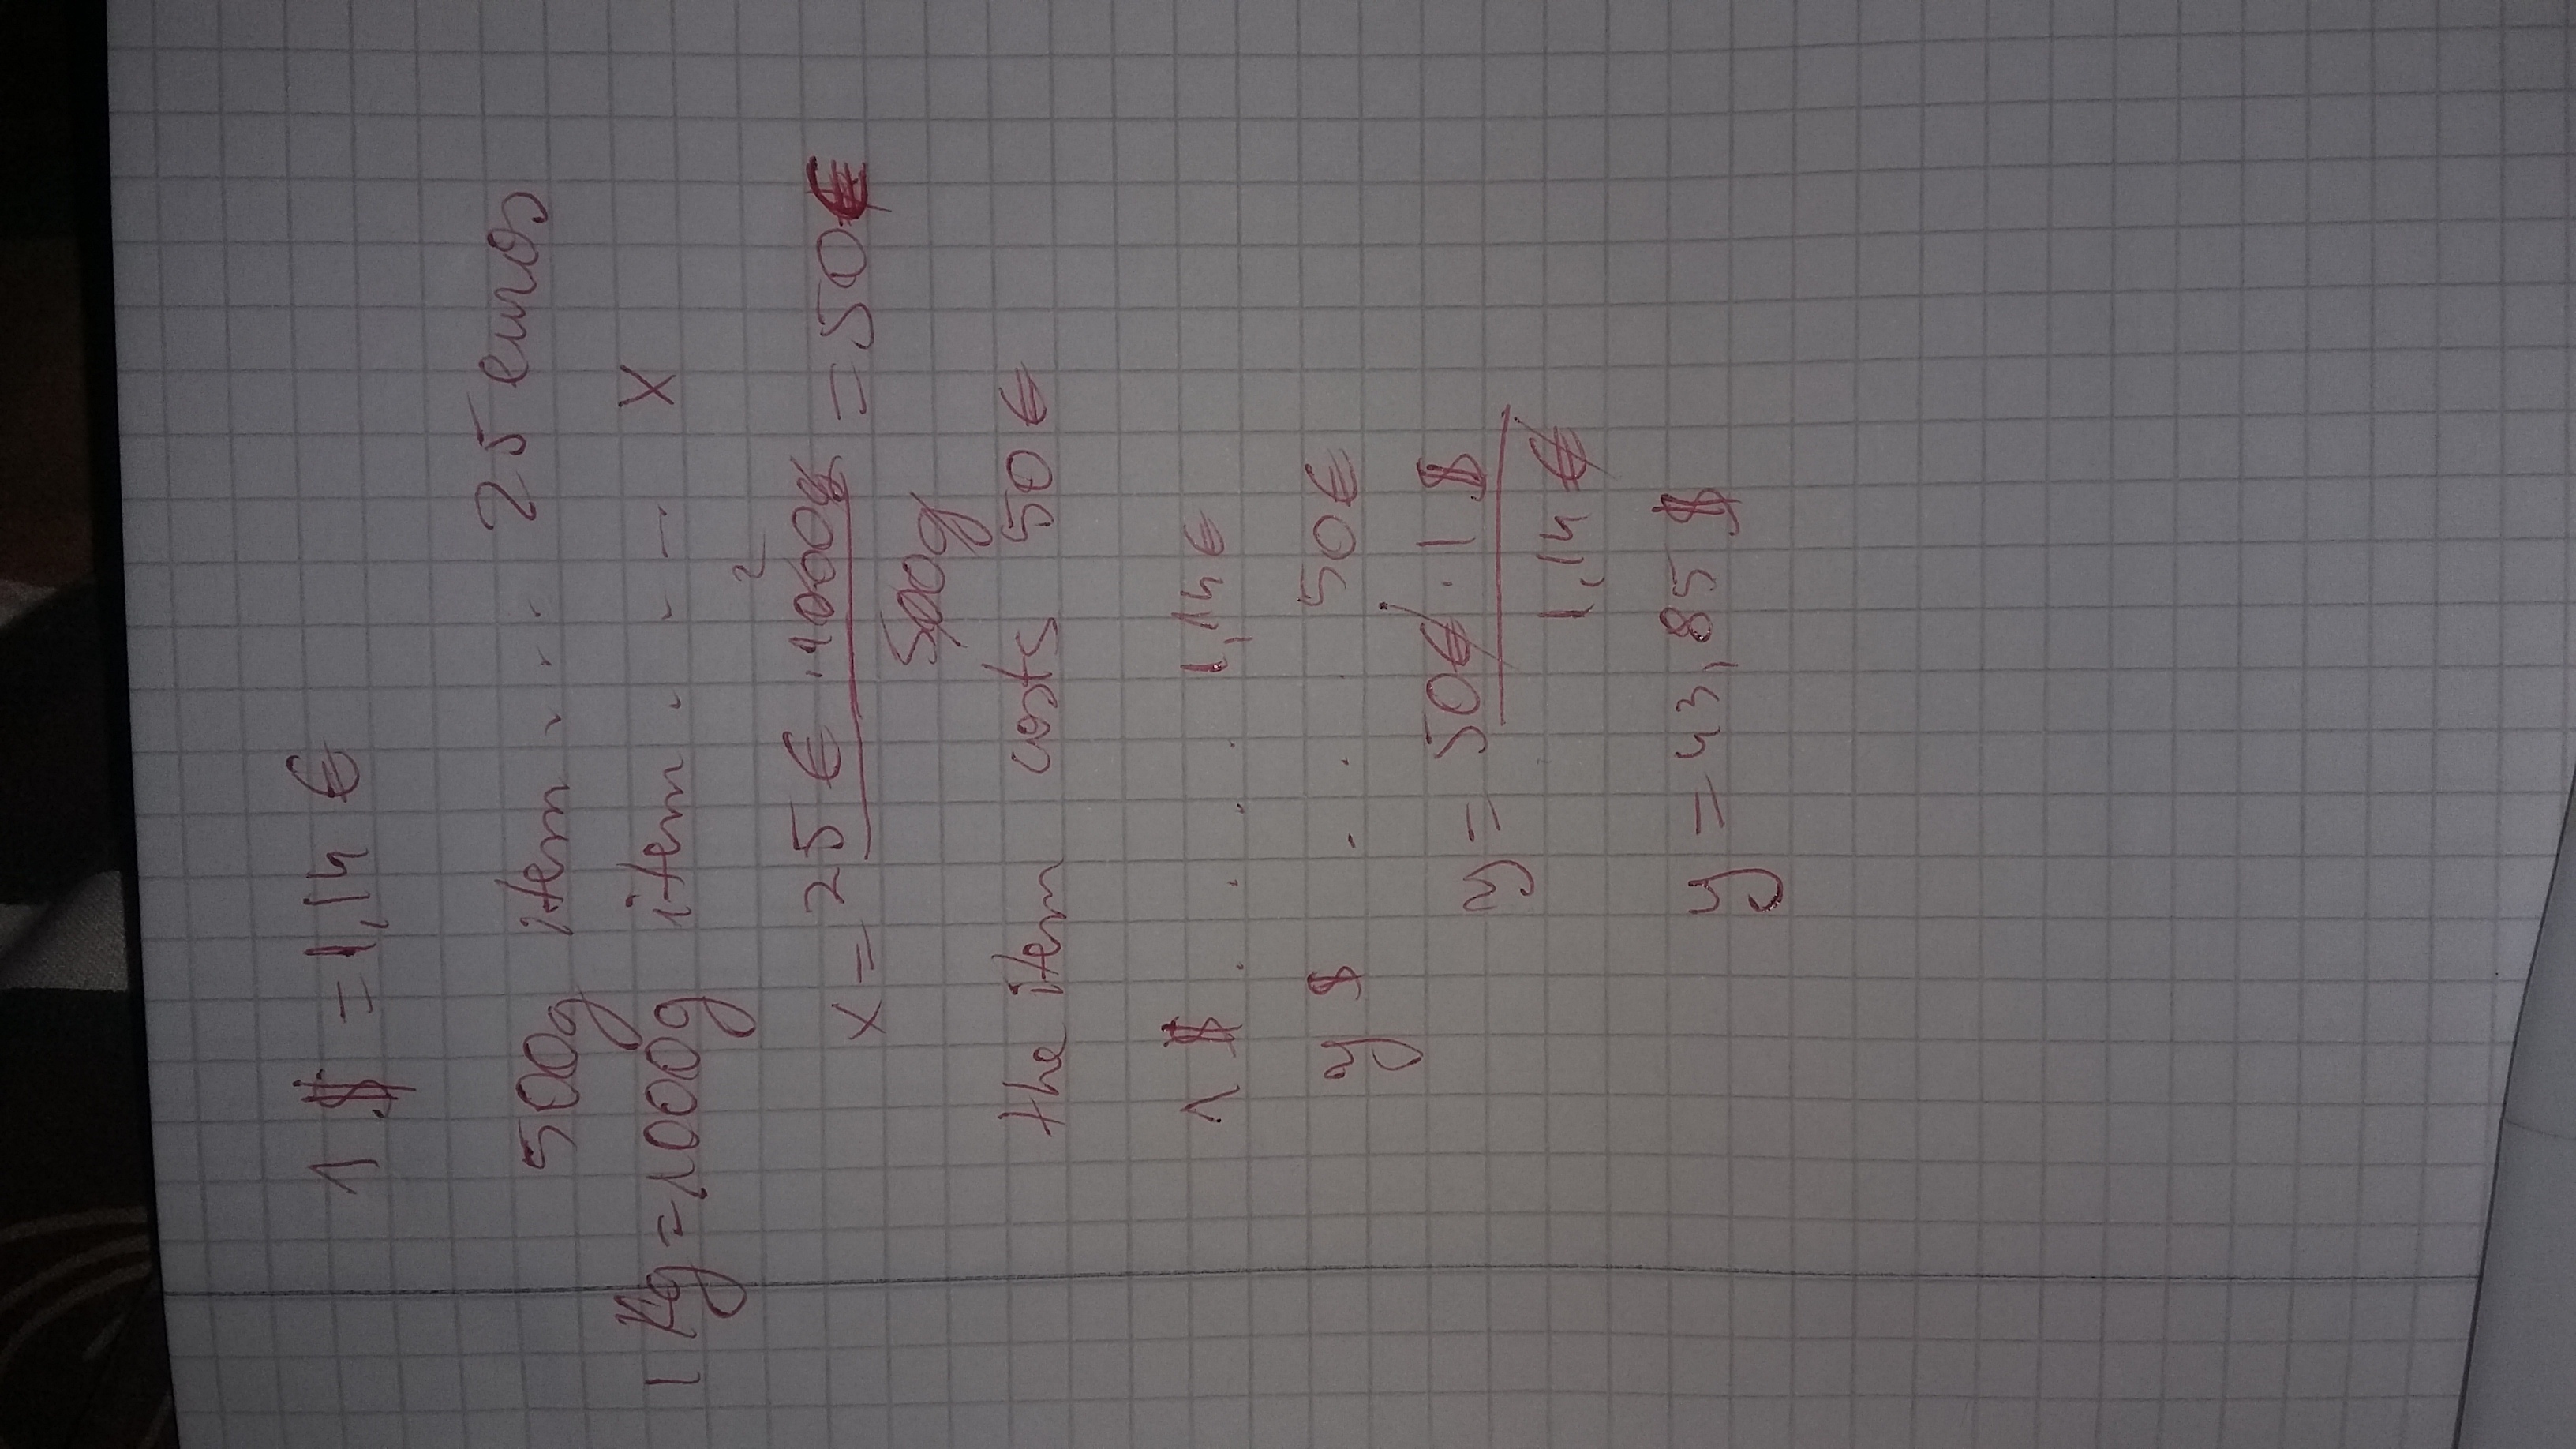 1 $ = 1,14 €
500g item . . . . 25 euros
1 Kg = 1000g item . . - - X
x = 25 € · 1000g / 500g = 50 €
2
the item costs 50 €
1 $ . . . . 1,14 €
y $ . . . 50 €
y = 50 € · 1 $ / 1,14 €
y = 43,85 $